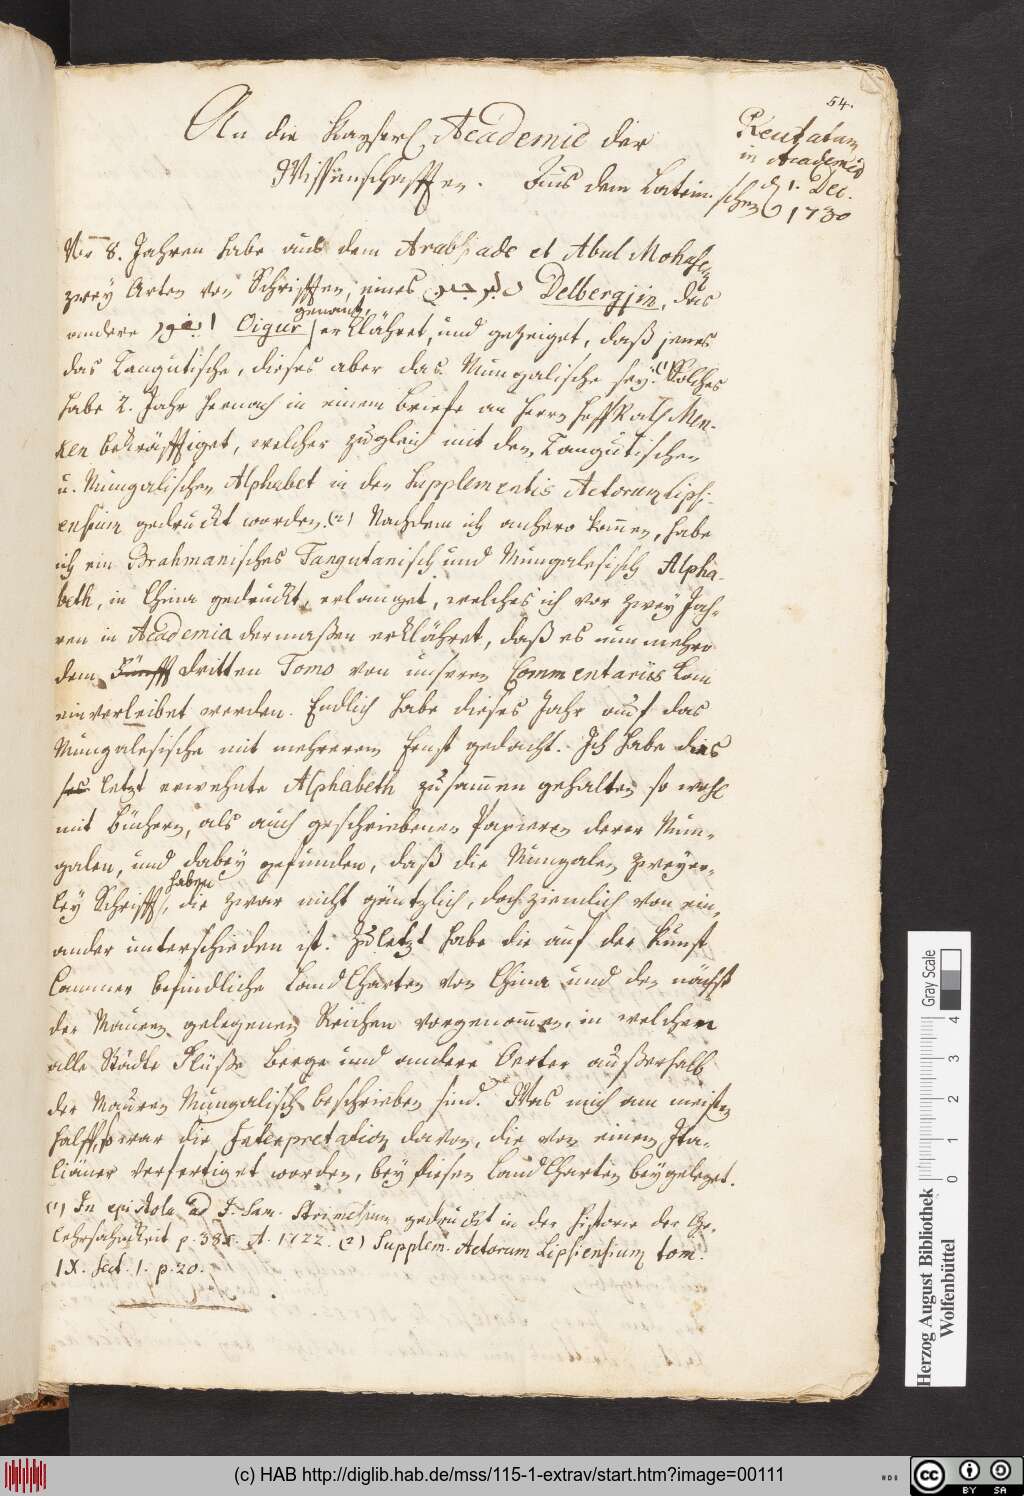 54.
An die Kayserl. Academie der
Wissenschafften. Aus dem Lateinischen
Recitatum
in Academia
d. 1. Dec.
1730
Vor 8. Jahren habe aus dem Arabsiade et Abul Mohasen
zwey Arten von Schrifften, eines Delbergjin, das
andere Oigur genant, erklähret, und gezeiget, daß jenes
das Tangutische, dieses aber das Mungalische sey. (1) Solches
habe 2. Jahr hernach in einem Briefe an Herrn HoffRath Men-
ken bekräfftiget, welcher zugleich mit dem Tangutischen
u. Mungalischen Alphabet in den Supplementis Actorum Lipsi-
ensium gedruckt worden. (2) Nachdem ich anhero kommen, habe
ich ein Brahmanisches Tangutanisch und Mungalesisch Alpha-
beth, in China gedruckt, erlanget, welches ich vor zwey Jah-
ren in Academia dermaßen erklähret, daß es nunmehro
dem dritten Tomo von unseren Commentariis kan
einverleibet werden. Endlich habe dieses Jahr auf das
Mungalesische mit mehrerem Ernst gedacht. Ich habe die-
ses letzt erwehnte Alphabeth zusammen gehalten so wohl
mit Büchern, als auch geschriebenen Papieren derer Mun-
galen, und dabey gefunden, daß die Mungalen zweyer-
ley Schrifft haben, die zwar nicht gäntzlich, doch ziemlich von ein-
ander unterschieden ist. Zuletzt habe die auf der Kunst
Cammer befindliche LandCharten von China und den nächst
der Mauren gelegenen Reichen vorgenommen, in welchen
alle Städte Flüße Berge und andere Oerter außerhalb
der Mauren Mungalisch beschrieben sind. Was mich am meisten
halff, war die Interpretation davon, die von einem Ita-
liäner verfertiget worden, bey diesen LandCharten beygeleget.
(1) In epistola ad J. Sam. gedruckt in der Historie der Ge-
lehrsahmkeit p. 385. A. 1722. (2) Supplem. Actorum Lipsiensium tom.
IX. sect. 1. p. 20.
Herzog August Bibliothek
Wolfenbüttel
Gray Scale
0 1 2 3 4
(c) HAB http://diglib.hab.de/mss/115-1-extrav/start.htm?image=00111
cc BY SA